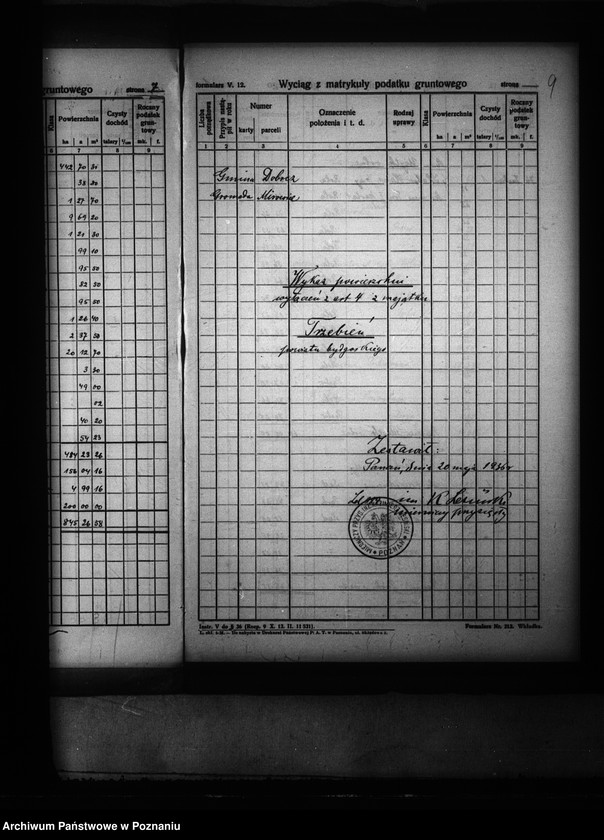 gruntowego strona 7
Klasa Powierzchnia Czysty dochód Roczny podatek gruntowy
ha a m² talary 1/100 mk. f.
6 7 8 9
442 70 31
33 20
1 27 70
9 69 20
1 21 30
99 10
95 50
52 30
95 50
1 26 40
2 37 30
20 12 70
3 30
49 00
02
40 20
54 23
484 23 26
156 04 16
4 99 16
200 00 00
845 26 58
formularz V. 12. Wyciąg z matrykuły podatku gruntowego strona
9
Liczba porządkowa Przypis nastąpił w roku Numer Oznaczenie położenia i t. d. Rodzaj uprawy Klasa Powierzchnia Czysty dochód Roczny podatek gruntowy
karty parceli ha a m² talary 1/100 mk. f.
1 2 3 4 5 6 7 8 9
Gmina Dobrcz
Gromada
Wykaz powierzchni
wyłączeń z art 4 z majątku
Trzebień
powiatu bydgoskiego
Zestawił:
Poznań, dnia 20 maja 1936 r
mierniczy przysięgły
MIERNICZY PRZYSIĘGŁY
POZNAŃ
Instr. V do § 26 (Rozp. 9 X. 12. II. 11 531). Formularz Nr. 213. Wkładka.
Do nabycia w Drukarni Państwowej P. A. T. w Poznaniu, ul. Składowa
Archiwum Państwowe w Poznaniu